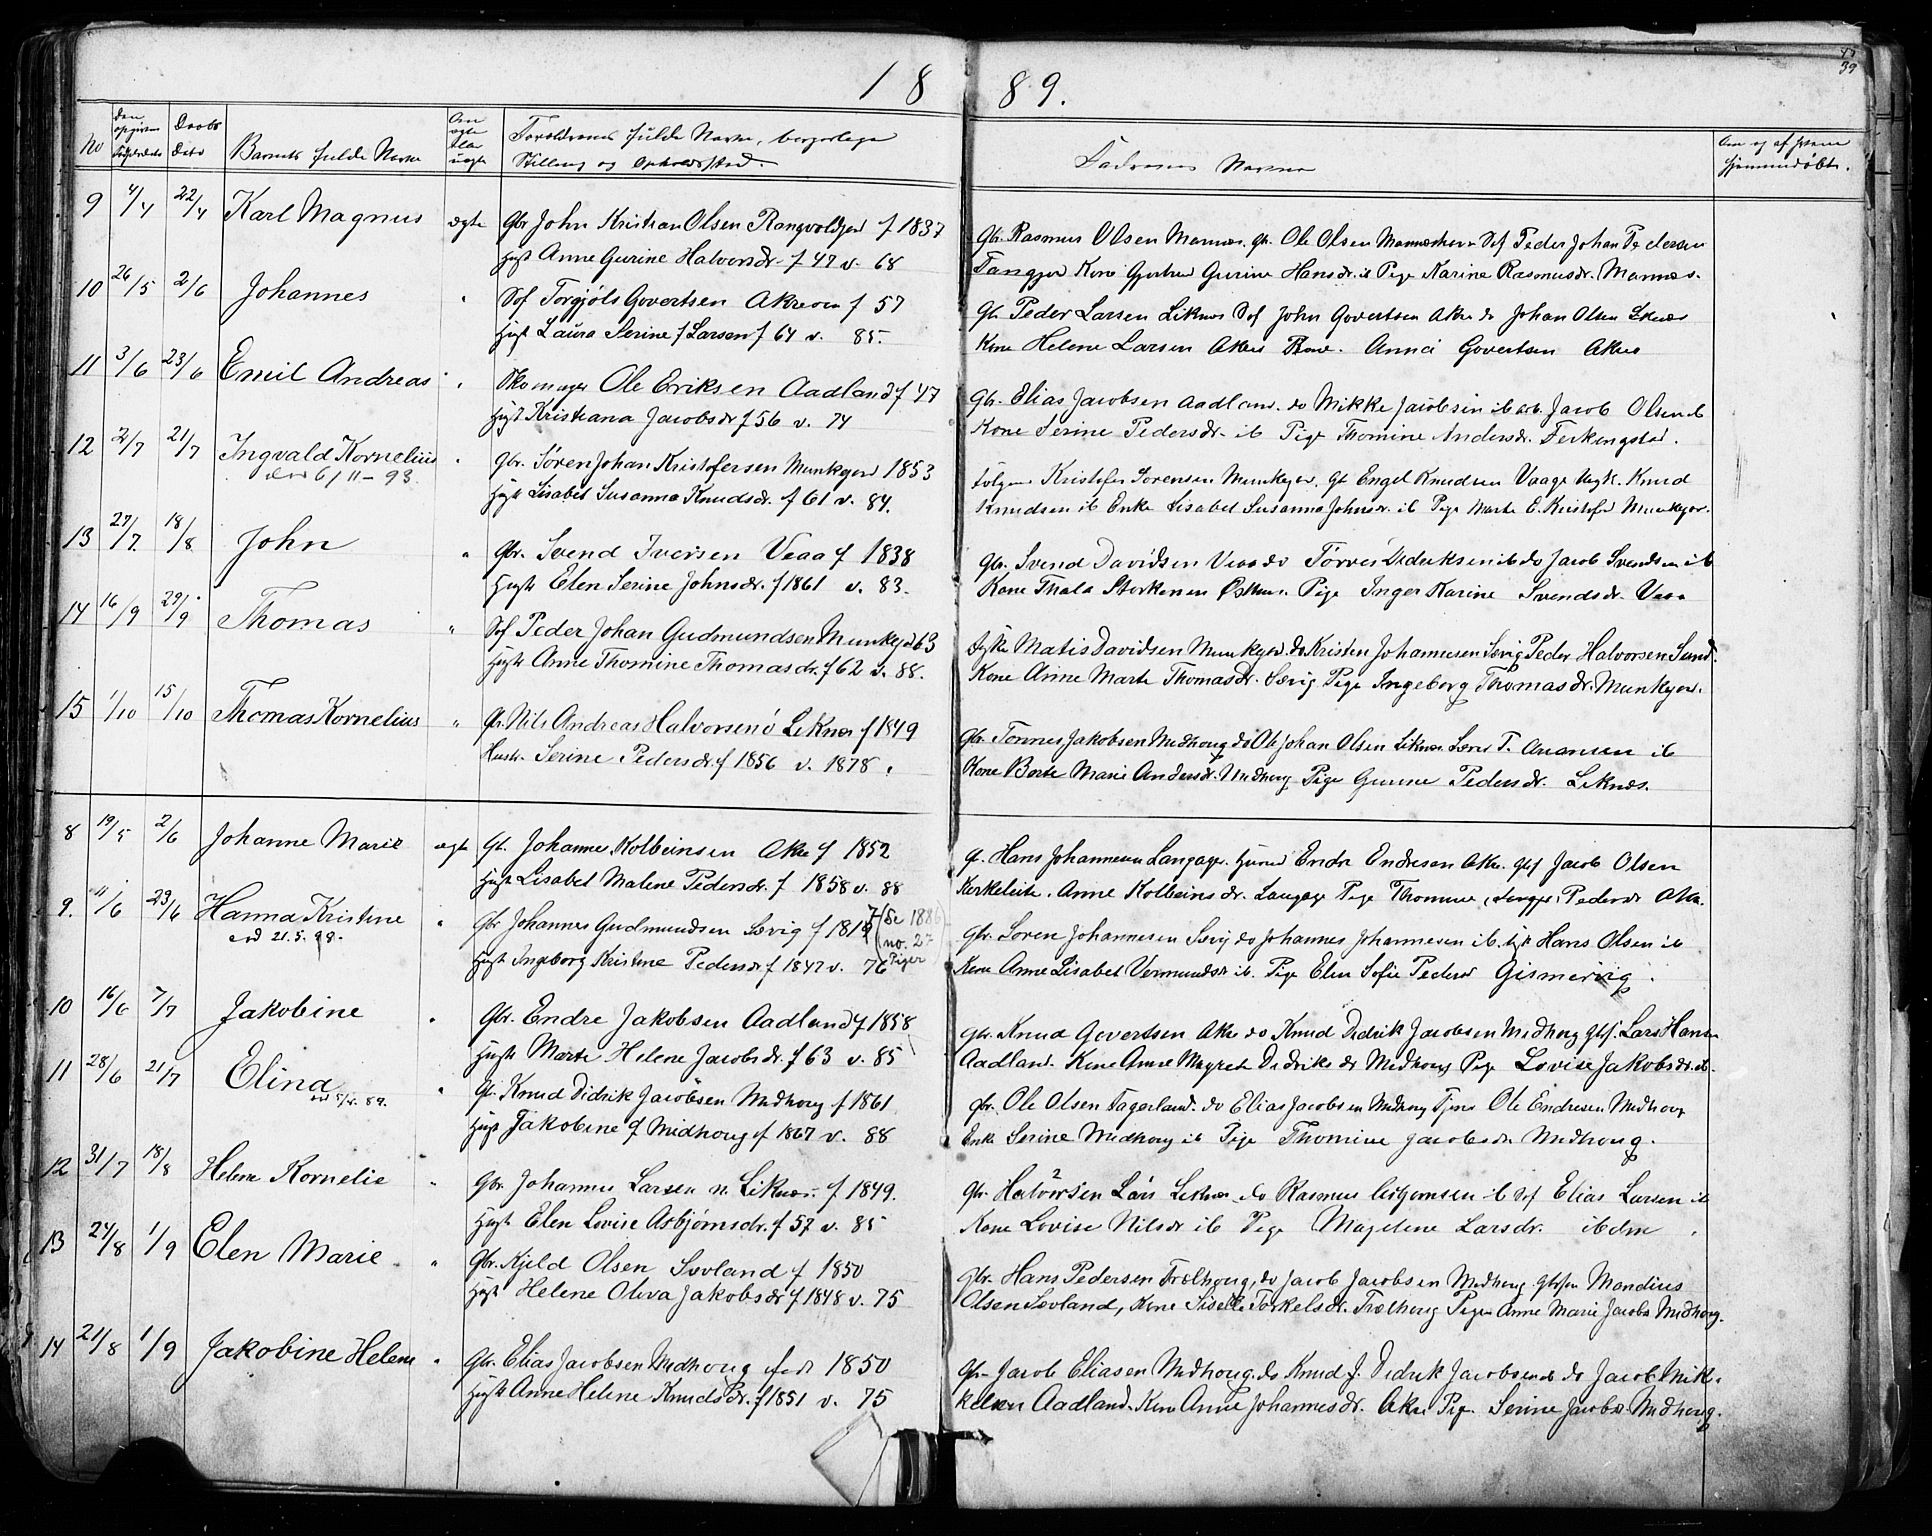 18 89.
39
No Den opgivne Fødselsdato Daabs Dato Barnets fulde Navn Om ægte eller uægte Forældrenes fulde Navne, borgerlige
Stilling og Opholdssted. Faddernes Navne Om og af hvem hjemmedøbt.
9 4/4 22/4 Karl Magnus ægte Gbr John Kristian Olsen Rangvoldjer f 1837
Hust Anne Gurine Halvorsdr. f 47 v. 68
Gbr. Rasmus Olsen Mannes. Gbr. Ole Olsen Søf Peder Johan Pedersen
Tangjer Kone Gurine Hansdr. ib Pige Karine Rasmusdr. Mannes.
10 26/5 2/6 Johannes " Søf Torgjøls Govertsen Akreen f 57
Hust Laura Serine f Larsen f 64 v. 85.
Gbr Peder Larsen Liknes Søf John Govertsen Akre do Johan Olsen Liknes
Kone Helene Larsen Akre Anna Govertsen Akre
11 3/6 23/6 Emil Andreas " Skomager Ole Eriksen Aadland f 47
Hust Kristiana Jacobsdr f 56 v. 74
Gbr. Elias Jacobsen Aadland. do Mikkel Jacobsen ib arb. Jacob Olsen ib
Kone Serine Pedersdr. ib Pige Thomine Andersdr. Ferkingstad.
12 2/7 21/7 Ingvald Kornelius " Gbr. Søren Johan Kristofersen Munkejord 1853
død 6/11-93. Hust Lisabet Susanna Knudsdr. f 61 v. 84.
Kristofer Sørensen Munkejor. Gbr Engel Knudsen Vaage Ungk. Knud
Knudsen ib Enke Lisabet Susanna Johnsdr. ib Pige Marte E. Kristofd Munkejor.
13 27/7 18/8 John " Gbr. Svend Iversen Veaa f 1838
Hust Elen Serine Johnsdr. f 1861 v. 83.
Gbr. Svend Davidsen Veaa do Tørres Dideriksen ib do Jacob Svendsen ib
Kone Thala Storkersen Pige Inger Karine Svendsdr. Veaa
14 16/9 29/9 Thomas " Søf Peder Johan Gudmundsen Munkejd 63
Hust Anne Thomine Thomasdr. f 62 v. 88.
Matis Davidsen Munkejord. do Kristen Johannesen Sævig Peder Halvorsen Sund.
Kone Anne Marte Thomasdr. Sævig Pige Ingeborg Thomasdr. Munkejor.
15 1/10 15/10 Thomas Kornelius " Gbr Nils Andreas Halvorsen ø Liknes f 1849
Hustr. Serine Pedersdr f 1856 v. 1878.
Gbr. Tønnes Jakobsen Midhoug do Ole Johan Olsen Liknes T. Aanensen ib
Kone Berte Marie Andersdr. Midhoug Pige Gurine Pedersdr. Liknes.
8 19/5 2/6 Johanne Marie ægte Gbr. Johannes Kolbeinsen Akre f 1852
Hust Lisabet Malene Pedersdr. f 1858 v. 88
G. Hans Johannesen Langaager. Endre Endresen Akre. Gbsf Jacob Olsen
Kirkeleite. Anne Kolbeinsdr. Langage Pige Thomine, Pedersdr Akre.
9. 11/6 23/6 Hanna Kristine " Gbr Johannes Gudmundsen Sævig f 1819 (Se 1886
død 21.5.99. no. 27
Hust Ingeborg Kristine Pedersdr f 1847 v. 76 Piger
Gbr. Søren Johannesen Sævig do Johannes Johannesen ib. Hans Olsen ib
Kone Anne Lisabet Vermundsdr ib. Pige Elen Sofie Pedersd Gismervig.
10 16/6 7/7 Jakobine " Gbr. Endre Jakobsen Aadland f 1858
Hust Marte Helene Jacobsdr. f 63 v. 85
Gbr. Knud Govertsen Akre do Knud Didrik Jacobsen Midhoug Gbsf. Lars Hansen
Aadland. Kone Anne Magrete Didriksdr Midhoug Pige Lovise Jakobsdr. ib.
11 28/6 21/7 Elina " Gbr. Knud Didrik Jacobsen Midhoug f 1861
Hust Jakobine f Midhoug f 1867 v. 88
Gbr. Ole Olsen Fagerland. do Elias Jacobsen Midhoug Tjener Ole Endresen Midhoug
Enke Serine Midhoug ib Pige Thomine Jacobsdr Midhoug.
12 31/7 18/8 Helene Kornelie " Gbr. Johannes Larsen n. Liknes. f 1849.
Hust Elen Lovise Asbjørnsdr. f 57 v. 85
Gbr. Halvorsen Lars Liknes do Rasmus Asbjørnsen ib Søf Elias Larsen ib
Kone Lovise Nilsdr ib Pige Magdlene Larsdr. ibdm.
13 24/8 1/9 Elen Marie " Gbr. Kjeld Olsen Sævland f 1850
Hust Helene Oliva Jakobsdr f 1848 v. 75
Gbr. Hans Pedersen Trælhoug, do Jacob Jacobsen Midhoug Gbrsøn Mandius
Olsen Sævland, Kone Siselle Torkelsdr. Trælhoug Pigen Anne Marie Jacobs Midhoug.
14 21/8 1/9 Jakobine Helene " Gbr. Elias Jacobsen Midhoug født 1850
Hust Anne Helene Knudsdr. f 1851 v. 75
Gbr. Jacob Eliasen Midhoug. do Knud J. Didrik Jacobsen do Jacob Mik-
kelsen Aadland. Kone Anne Johannesdr. Akre Pige Serine Jacobsd. Midhoug.